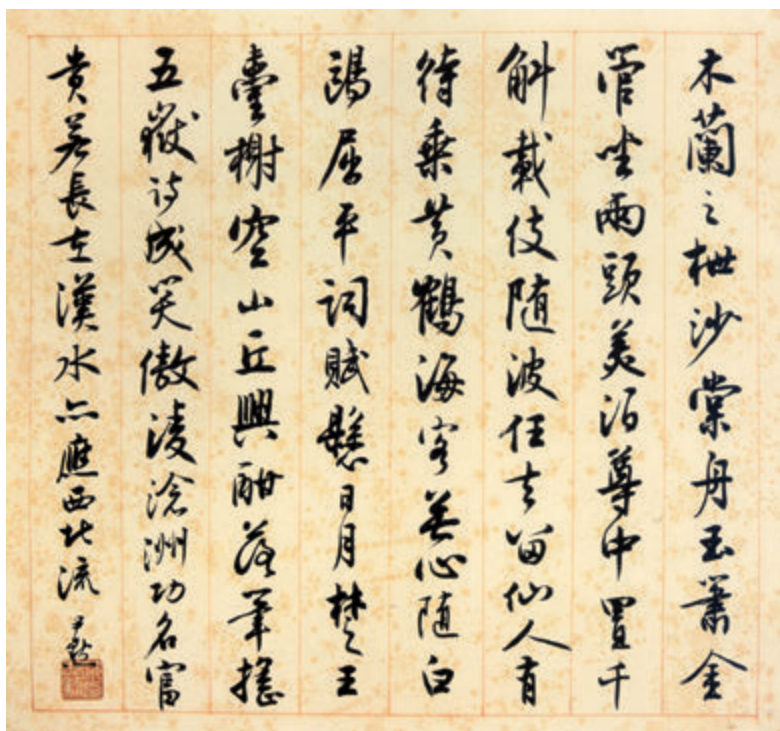 木蘭之枻沙棠舟玉簫金
管坐兩頭美酒尊中置千
斛載伎随波任去留仙人有
待乘黄鶴海客無心随白
鷗屈平詞賦懸日月楚王
臺榭空山丘興酣落筆搖
五嶽詩成笑傲淩滄洲功名富
貴若長在漢水亦應西北流 尹默